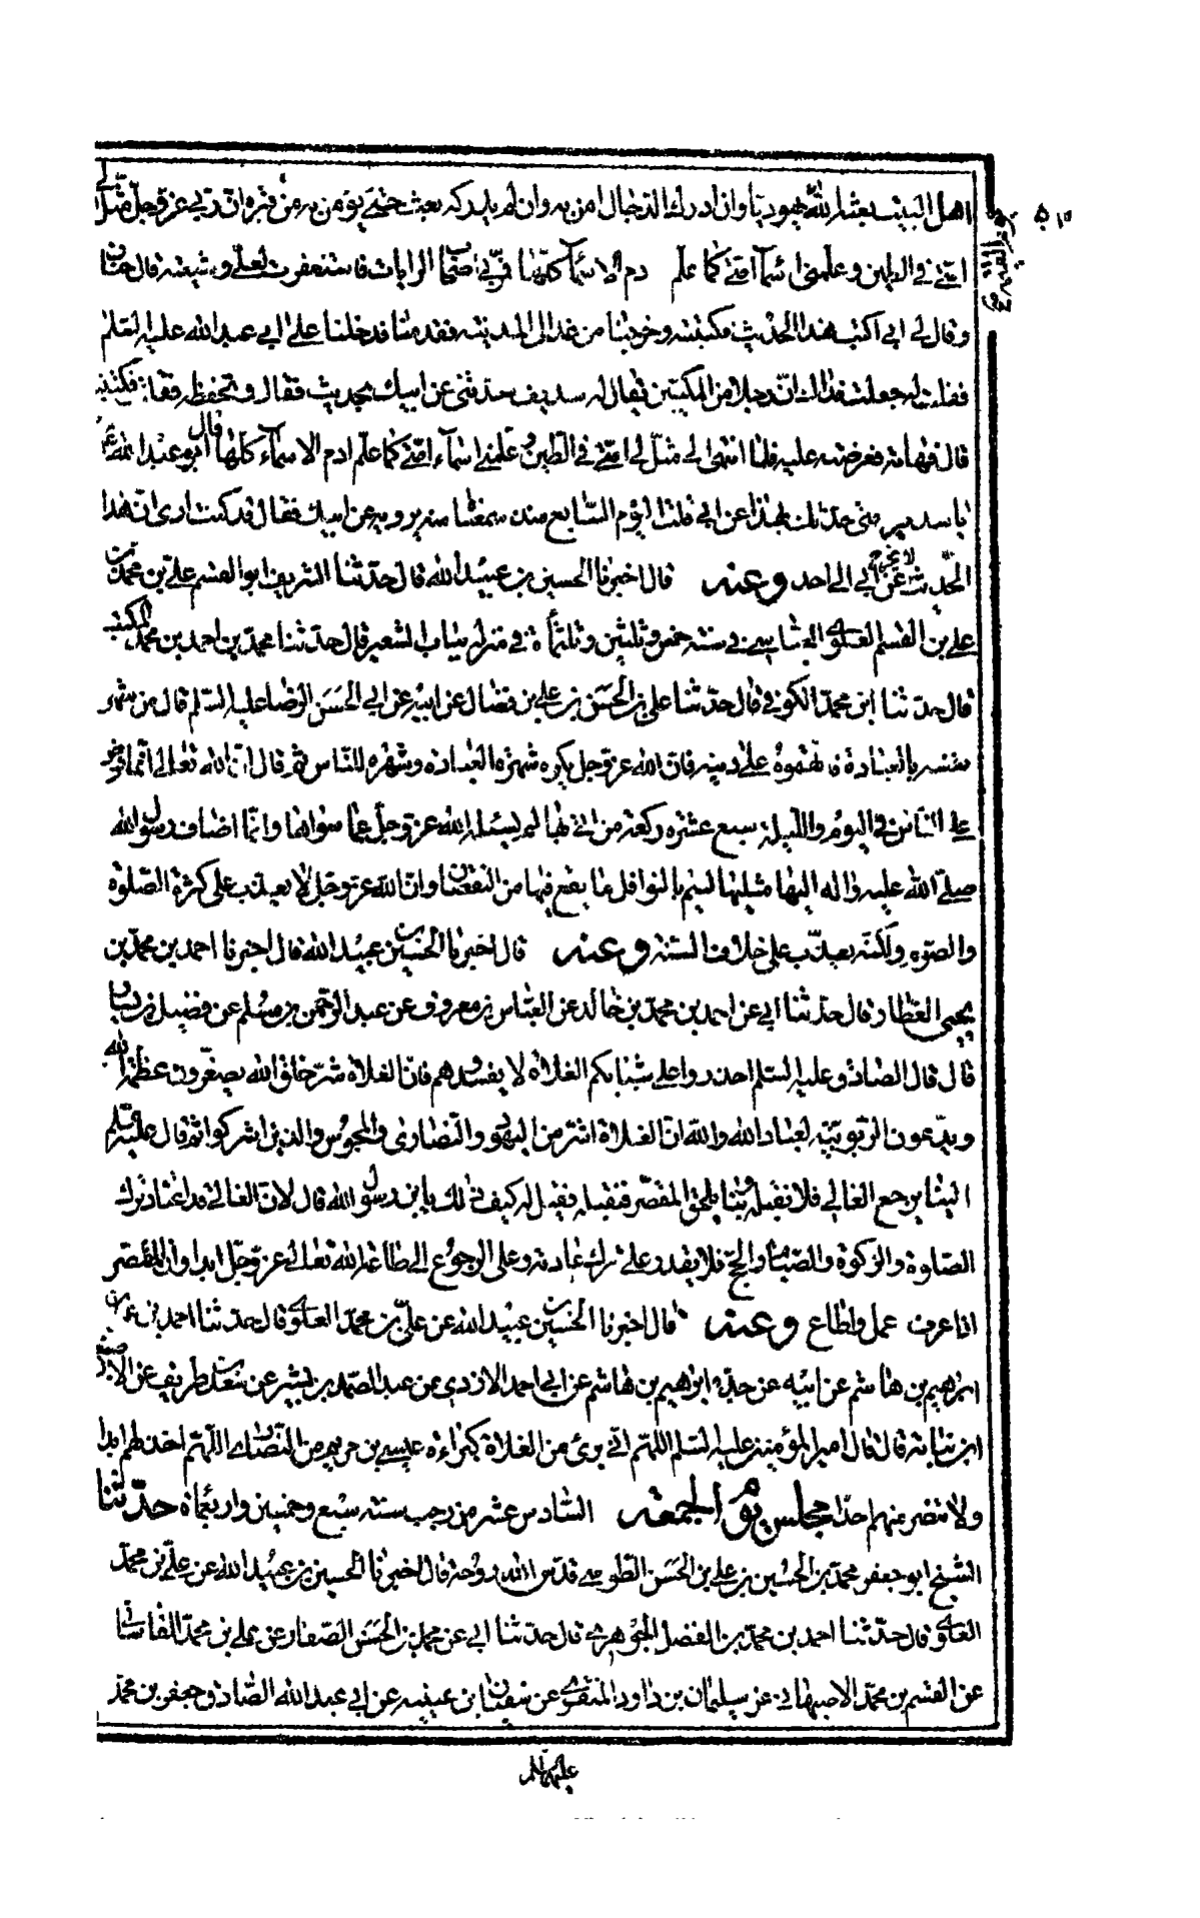 اهل البيت بعثه الله يهوديا وان ادرك الدجال امن به وان لم يدركه بعث حتى يؤمن به من قبره ان ربى عز وجل مثل لى
امتى فى الطين وعلمنى اسماء امتى كما علم ادم الاسماء كلها فمر بى اصحاب الرايات فاستغفرت لعلى وشيعته قال حنان
وقال لى ابى اكتب هذا الحديث فكتبته وخرجنا من غد الى المدينة فقدمنا فدخلنا على ابى عبدالله عليه السلم
فقلت له جعلت فداك ان رجلا من المكيين يقال له سديف حدثنى عن ابيك بحديث فقال وتحفظه فقلت كتبته
قال فهاته فعرضته عليه فلما انتهى الى مثل لى امتى فى الطين وعلمنى اسماء امتى كما علم ادم الاسماء كلها قال ابو عبدالله ع
يا سدير متى حدثك بهذا عن ابى قلت اليوم السابع منذ سمعنا منه يرويه عن ابيك فقال قد كنت ارى ان هذا
الحديث لا يخرج عن ابى الى احد وعنه قال اخبرنا الحسين بن عبيدالله قال حدثنا الشريف ابو القسم على بن محمد بن
على بن القسم العلوى العباسى فى سنة خمس وثلثين وثلثمأة فى منزله بباب الشعير قال حدثنا محمد بن احمد بن محمد المكتب
قال حدثنا ابن محمد الكوفى قال حدثنا على بن الحسن بن على بن فضال عن ابيه عن ابى الحسن الرضا عليه السلم قال من شهر
نفسه بالعبادة فاتهموه على دينه فان الله عز وجل يكره شهرة العبادة وشهرة للناس ثم قال ان الله تعالى انما فرض
على الناس فى اليوم والليلة سبع عشرة ركعة من اتى بها لم يسئله الله عز وجل عما سواها وانما اضاف رسول الله
صلى الله عليه واله اليها مثليها ليتم بالنوافل ما يقع فيها من النقصان وان الله عز وجل لا يعذب على كثرة الصلوة
والصوم ولكنه يعذب على خلاف السنة وعنه قال اخبرنا الحسين بن عبيدالله قال اخبرنا احمد بن محمد بن
يحيى العطار قال حدثنا ابى عن احمد بن محمد بن خالد عن العباس بن معروف عن عبدالرحمن بن مسلم عن فضيل بن يسار
قال قال الصادق عليه السلم احذروا على شبابكم الغلاة لا يفسدوهم فان الغلاة شر خلق الله يصغرون عظمة الله
ويدعون الربوبية لعباد الله والله ان الغلاة اشر من اليهود والنصارى والمجوس والذين اشركوا ثم قال عليه السلم
الينا يرجع الغالى فلا نقبله وبنا يلحق المقصر فنقبله فقيل له كيف ذلك يابن رسول الله قال لان الغالى قد اعتاد ترك
الصلوة والزكوة والصيام والحج فلا يقدر على ترك عادته وعلى الرجوع الى طاعة الله تعالى عز وجل ابدا وان المقصر
اذا عرف عمل واطاع وعنه قال اخبرنا الحسين بن عبيدالله عن على بن محمد العلوى قال حدثنا احمد بن على بن
ابرهيم بن هاشم عن ابيه عن جده ابرهيم بن هاشم عن ابى احمد الازدى عن عبدالصمد بن بشير عن سعد بن طريف عن الاصبغ
ابن نباتة قال قال امير المؤمنين عليه السلم اللهم انى برئ من الغلاة كبراءة عيسى بن مريم من النصارى اللهم اخذلهم ابدا
ولا تنصر منهم احدا مجلس يوم الجمعة السادس عشر من رجب سنة سبع وخمسين واربعمأة حدثنا
الشيخ ابو جعفر محمد بن الحسن بن على بن الحسن الطوسى قدس الله روحه قال اخبرنا الحسين بن عبيدالله عن على بن محمد
العلوى قال حدثنا احمد بن محمد بن الفضل الجوهرى قال حدثنا ابى عن محمد بن الحسن الصفار عن على بن محمد القاسانى
عن القسم بن محمد الاصبهانى عن سليمان بن داود المنقرى عن سفيان بن عيينه عن ابى عبدالله الصادق جعفر بن محمد
عليهما السلم